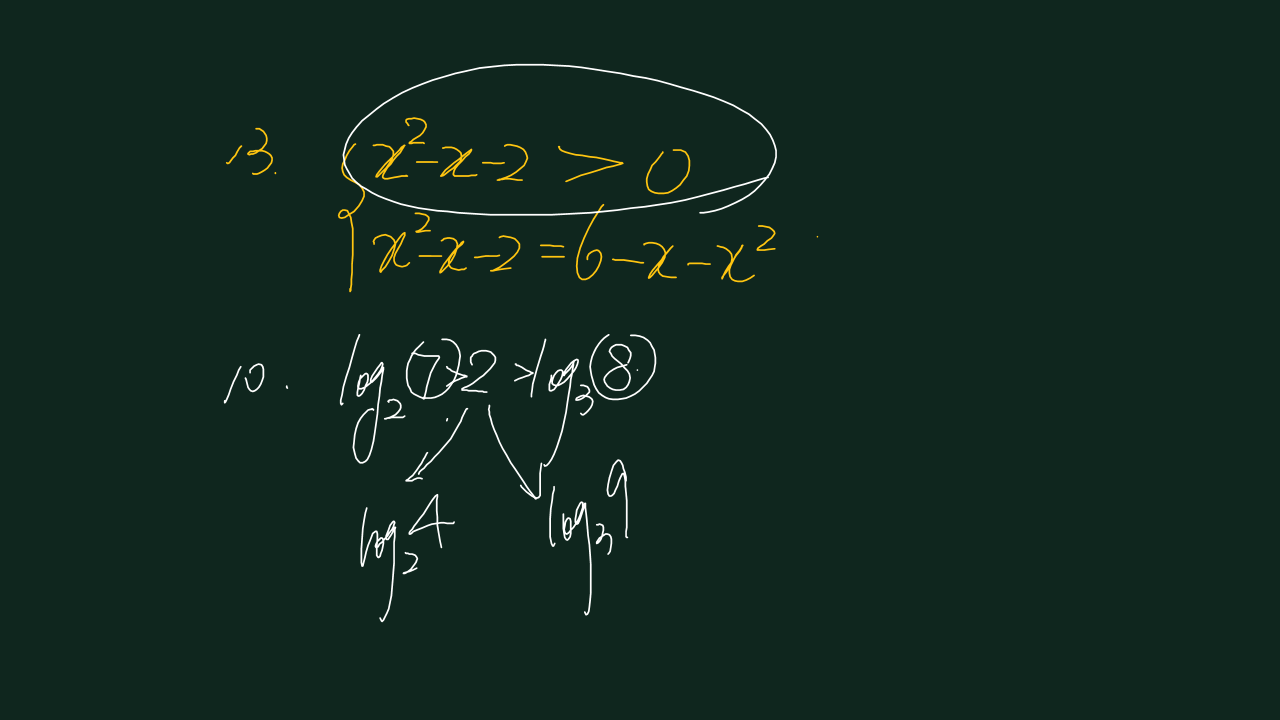 13. { x²-x-2 > 0
x²-x-2 = 6-x-x²
10. log₂7 > 2 > log₃8
log₂4 log₃9